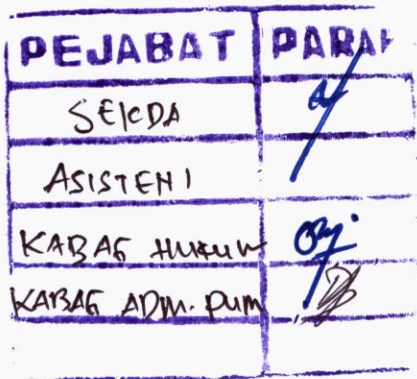 PEJABAT PARAF
SEKDA
ASISTEN I
KABAG HUKUM
KABAG ADM. PUM